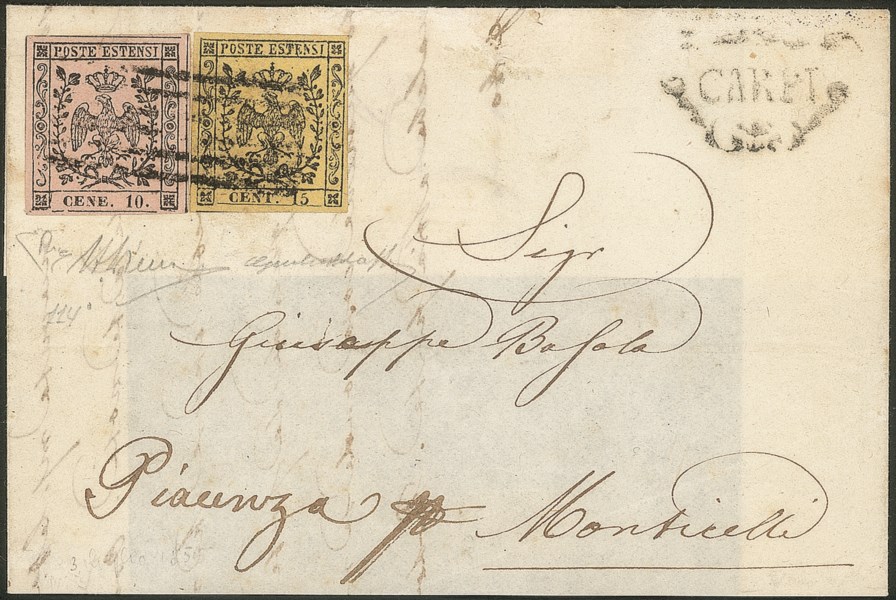 POSTE ESTENSI
CENE. 10.
POSTE ESTENSI
CENT. 15
CARPI
Sigr
Giuseppe Basola
Piacenza pr Monticelli
114